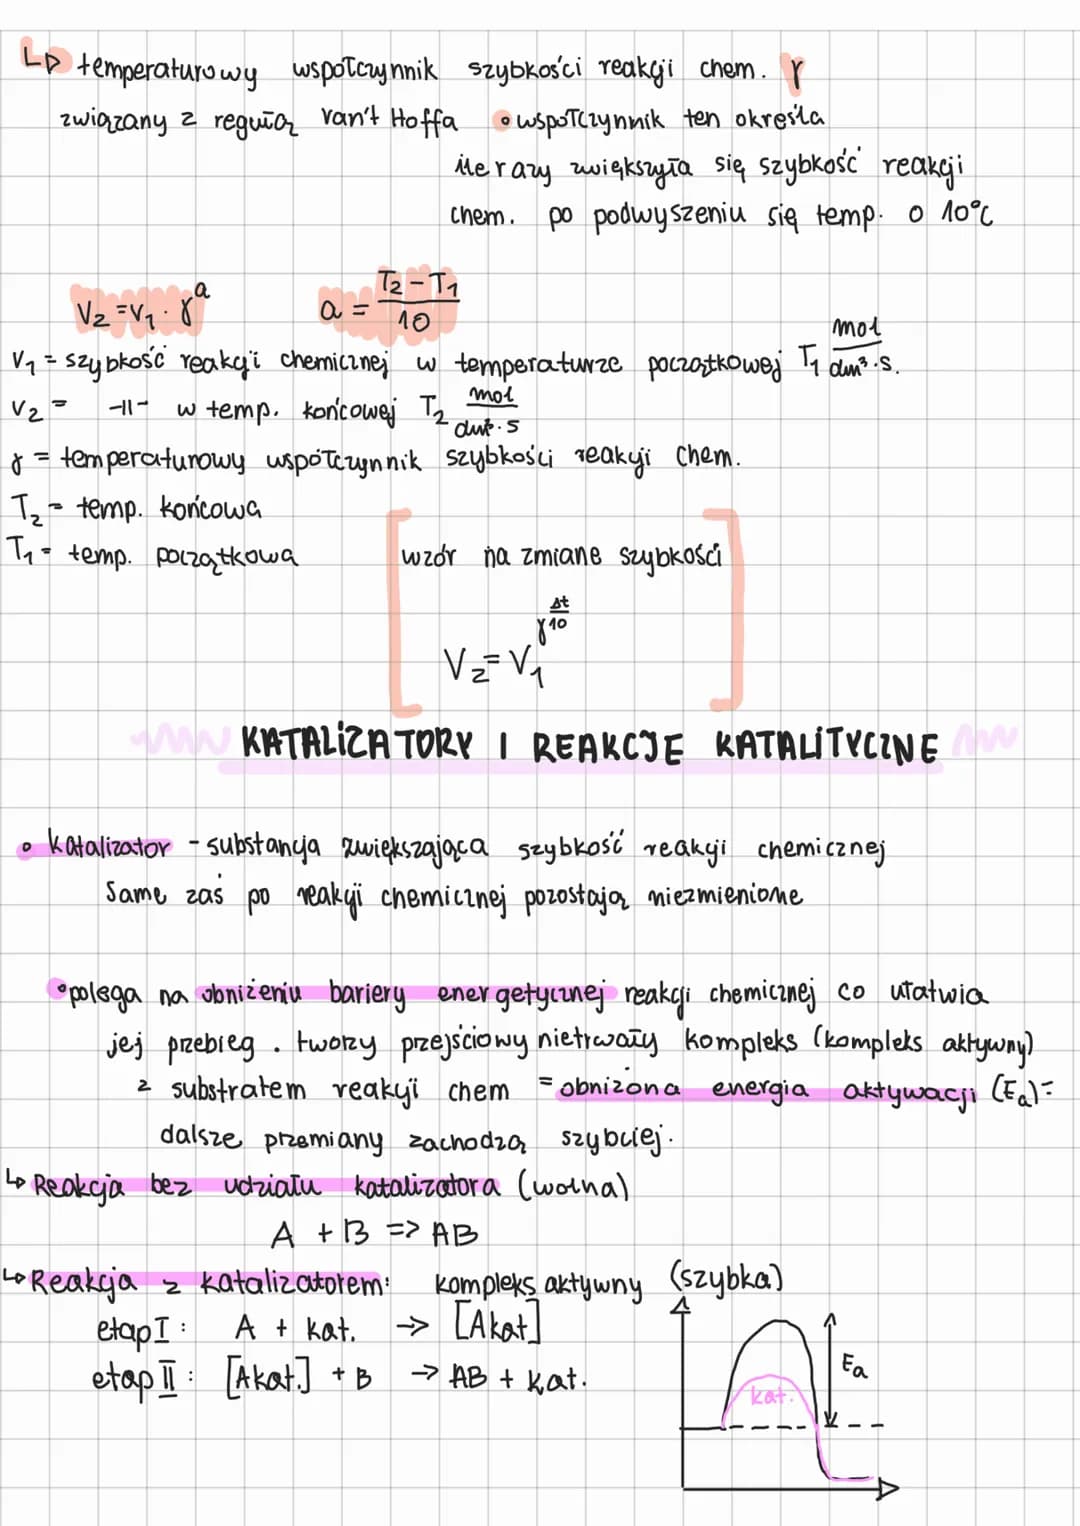 ↳ temperaturowy współczynnik szybkości reakcji chem. γ
związany z regułą van't Hoffa • współczynnik ten określa
ile razy zwiększyła się szybkość reakcji
chem. po podwyszeniu się temp. o 10°C
V₂ = V₁ · γᵃ a = (T₂ - T₁)/10
V₁ = szybkość reakcji chemicznej w temperaturze początkowej T₁ mol/dm³·s.
V₂ = -11- w temp. końcowej T₂ mol/dm³·s
γ = temperaturowy współczynnik szybkości reakcji chem.
T₂ = temp. końcowa
T₁ = temp. początkowa
wzór na zmiane szybkości
V₂ = V₁^γ^(Δt/10)
KATALIZATORY I REAKCJE KATALITYCZNE
• katalizator - substancja zwiększająca szybkość reakcji chemicznej
Same zaś po reakcji chemicznej pozostają niezmienione
• polega na obniżeniu bariery energetycznej reakcji chemicznej co ułatwia
jej przebieg. tworzy przejściowy nietrwały kompleks (kompleks aktywny)
z substratem reakcji chem = obniżona energia aktywacji (Eₐ) =
dalsze przemiany zachodzą szybciej.
↳ Reakcja bez udziału katalizatora (wolna)
A + B => AB
↳ Reakcja z katalizatorem: kompleks aktywny (szybka)
etap I: A + kat. → [Akat]
etap II: [Akat.] + B → AB + kat.
Eₐ
kat.